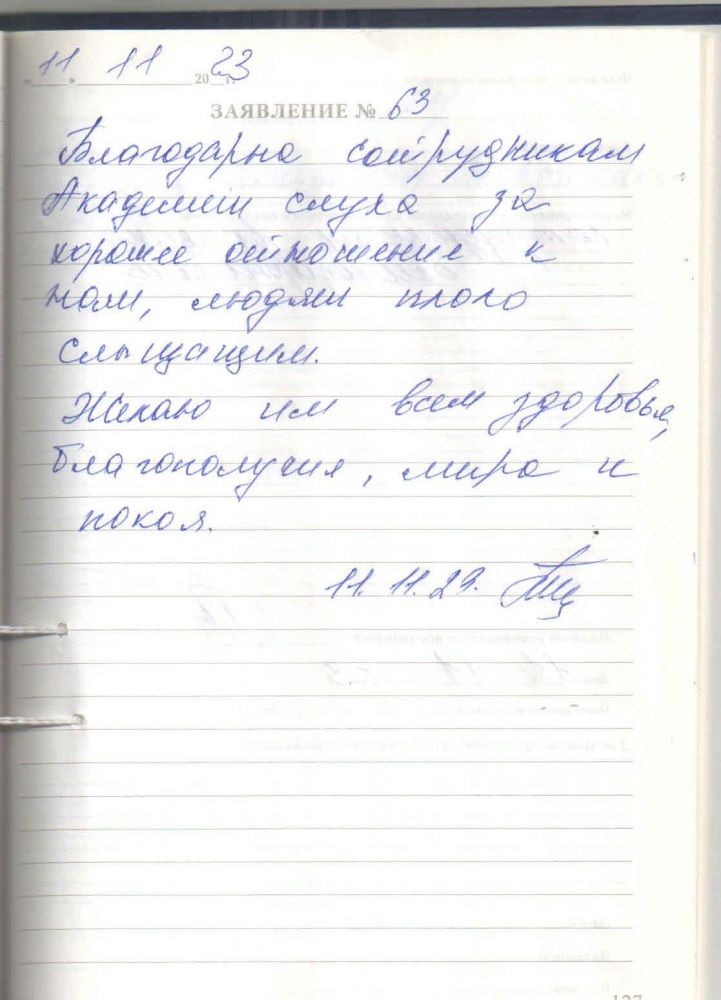 11 11 2023 г.
ЗАЯВЛЕНИЕ № 63
Благодарна сотрудникам
Академии слуха за
хорошее отношение к
нам, людям плохо
слышащим.
Желаю им всем здоровья,
благополучия, мира и
покоя.
11.11.23.